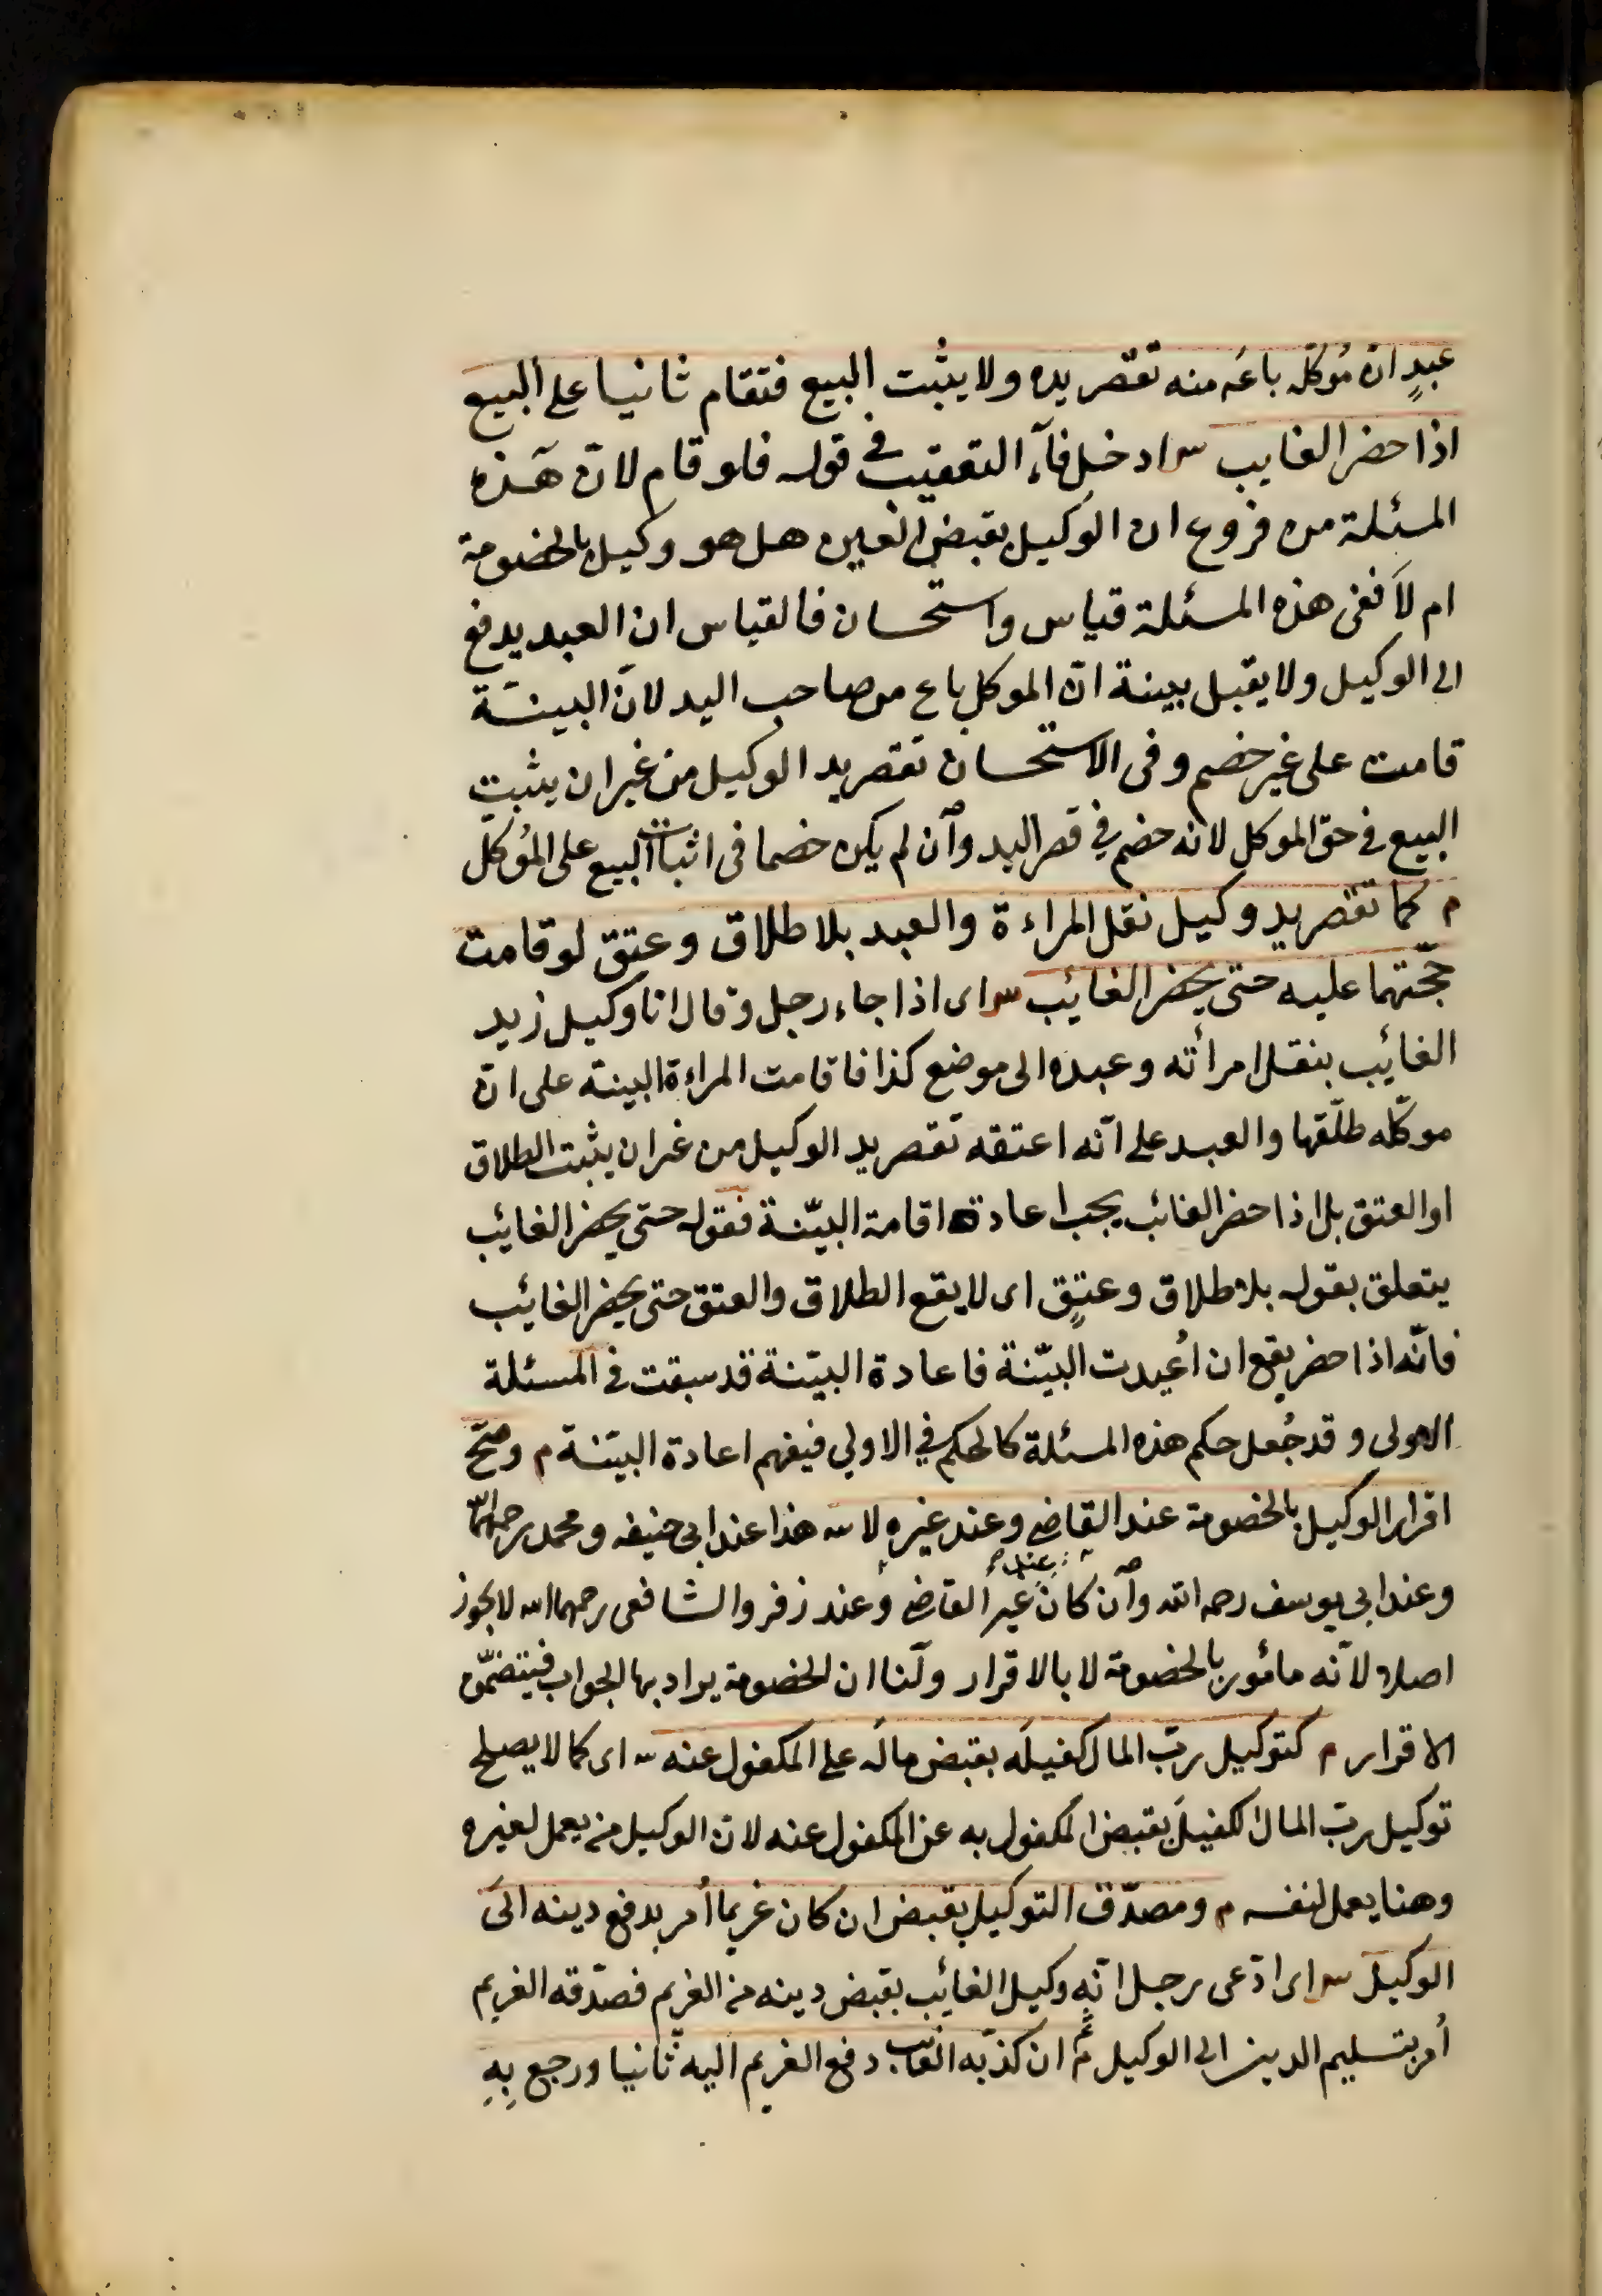 عبدٍ انّ مُوكّله باعَه منه تقصر يده ولا يثبت البيع فتقام ثانيا على البيع
اذا حضر الغايب س ادخل فآء التعقيب في قوله فلو قام لانّ هذه
المسئلة من فروع ان الوكيل بقبض العين هل هو وكيل بالخصومة
ام لا ففى هذه المسئلة قياس واستحسان فالقياس ان العبد يدفع
الى الوكيل ولا يقبل بينة انّ الموكل باع من صاحب اليد لانّ البينة
قامت على غير خصم وفى الاستحسان تقصر يد الوكيل من غير ان يثبت
البيع فى حق الموكل لانه خصم في قصر اليد وان لم يكن خصما فى اثبات البيع على المُوكل
م كما تقصر يد وكيل نقل المراءة والعبد بلا طلاق وعتق لو قامت
حجّتهما عليه حتى يحضر الغائب س اى اذا جاء رجل وقال انا وكيل زيد
الغائب بنقل امرأته وعبده الى موضع كذا فاقامت المراءة البينة على انّ
موكّله طلّقها والعبد على انّه اعتقه تقصر يد الوكيل من غير ان يثبت الطلاق
او العتق بل اذا حضر الغائب يجب اعادة اقامة البيّنة فقوله حتى يحضر الغائب
يتعلق بقوله بلا طلاق وعتقٍ اى لا يقع الطلاق والعتق حتى يحضر الغائب
فانّه اذا حضر يقع ان اُعيدت البيّنة فاعادة البيّنة قد سبقت فى المسئلة
الاولى وقد جُعل حكم هذه المسئلة كالحكم في الاولى فيفهم اعادة البيّنة م وصحّ
اقرار الوكيل بالخصومة عند القاضى وعند غيره لا س هذا عند ابى حنيفه ومحمد رحمهما الله
وعند ابى يوسف رحمه الله وان كان عند غير القاضى وعند زفر والشافعى رحمهما الله لا يجوز
اصلا لانّه مائمور بالخصومة لا بالاقرار ولنا ان الخصومة يراد بها الجواب فيتضمّن
الاقرار م كتوكيل ربّ المال كفيلَه بقبض ماله على المكفول عنه س اى كما لا يصلح
توكيل ربّ المال الكفيلَ بقبض المكفول به عن المكفول عنه لانّ الوكيل من يعمل لغيره
وهنا يعمل لنفسه م ومصدّق التوكيل بقبض ان كان غريما اُمر بدفع دينه الى
الوكيل س اى ادّعى رجل انّه وكيل الغائب بقبض دينه من الغريم فصدّقه الغريم
اُمر بتسليم الدين الى الوكيل م ثم ان كذّبه الغائب دفع الغريم اليه ثانيا ورجع بِهِ